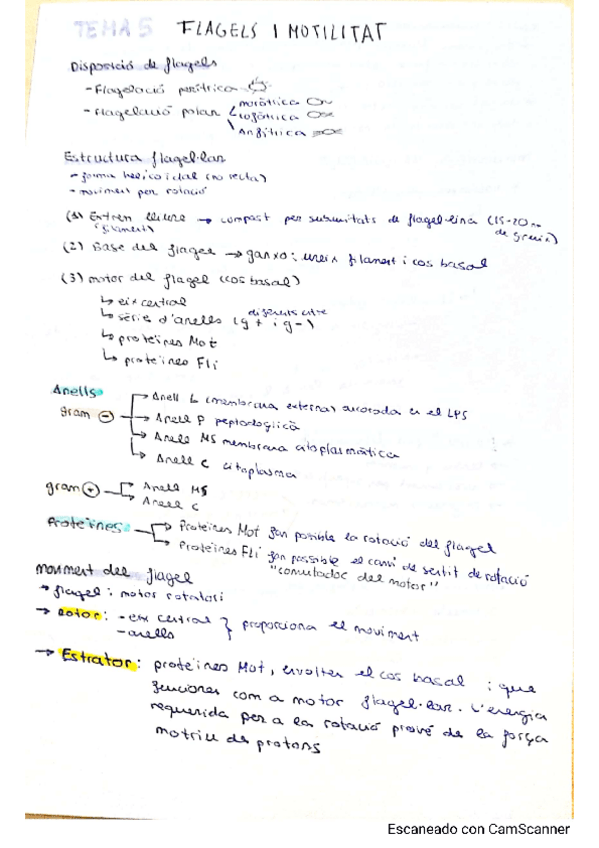 TEMA 5 FLAGELS I MOTILITAT
Disposició de flagels
- Flagelació perítrica
- Flagelació polar monòtrica
lofòtrica
Anfítrica
Estructura flagel·lar
- forma helicoidal (no recta)
- moviment per rotació
(1) Extrem lliure → compost per subunitats de flagel·lina (15-20 nm
(filament) de gruix)
(2) Base del flagel → ganxo: uneix filament i cos basal
(3) motor del flagel (cos basal)
↳ eix central
↳ sèrie d'anells (g+ i g-) diferents entre
↳ proteïnes Mot
↳ proteïnes Fli
Anells
gram ⊖
→ Anell L (membrana externa) ancorada en el LPS
→ Anell P peptidoglicà
→ Anell MS membrana citoplasmàtica
→ Anell C citoplasma
gram ⊕ → Anell MS
→ Anell C
Proteïnes → Proteïnes Mot fan possible la rotació del flagel
→ Proteïnes Fli fan possible el canvi de sentit de rotació
"commutador del motor"
moviment del flagel
→ flagel: motor rotatori
→ Rotor: - eix central } proporciona el moviment
- anells
→ Estrator: proteïnes Mot, envolten el cos basal i que
funcionen com a motor flagel·lar. L'energia
requerida per a la rotació prové de la força
motriu de protons
Escaneado con CamScanner